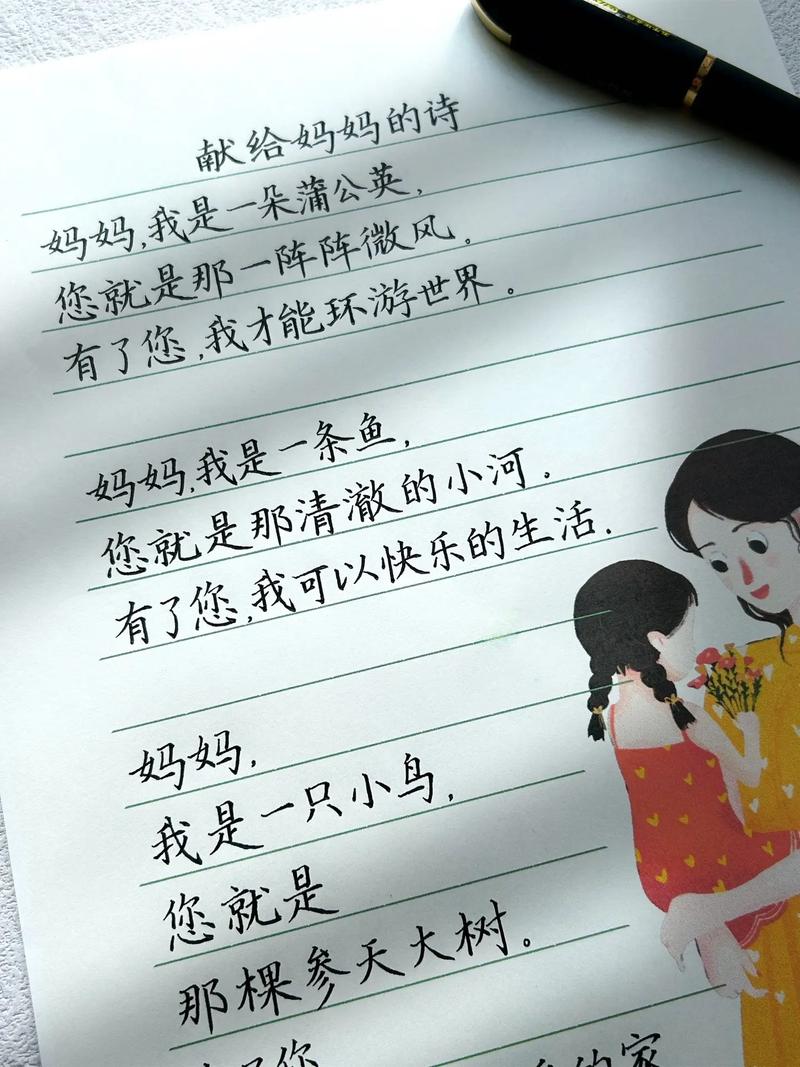 献给妈妈的诗
妈妈,我是一朵蒲公英,
您就是那一阵阵微风。
有了您,我才能环游世界。
妈妈,我是一条鱼,
您就是那清澈的小河。
有了您,我可以快乐的生活.
妈妈,
我是一只小鸟,
您就是
那棵参天大树。
的家